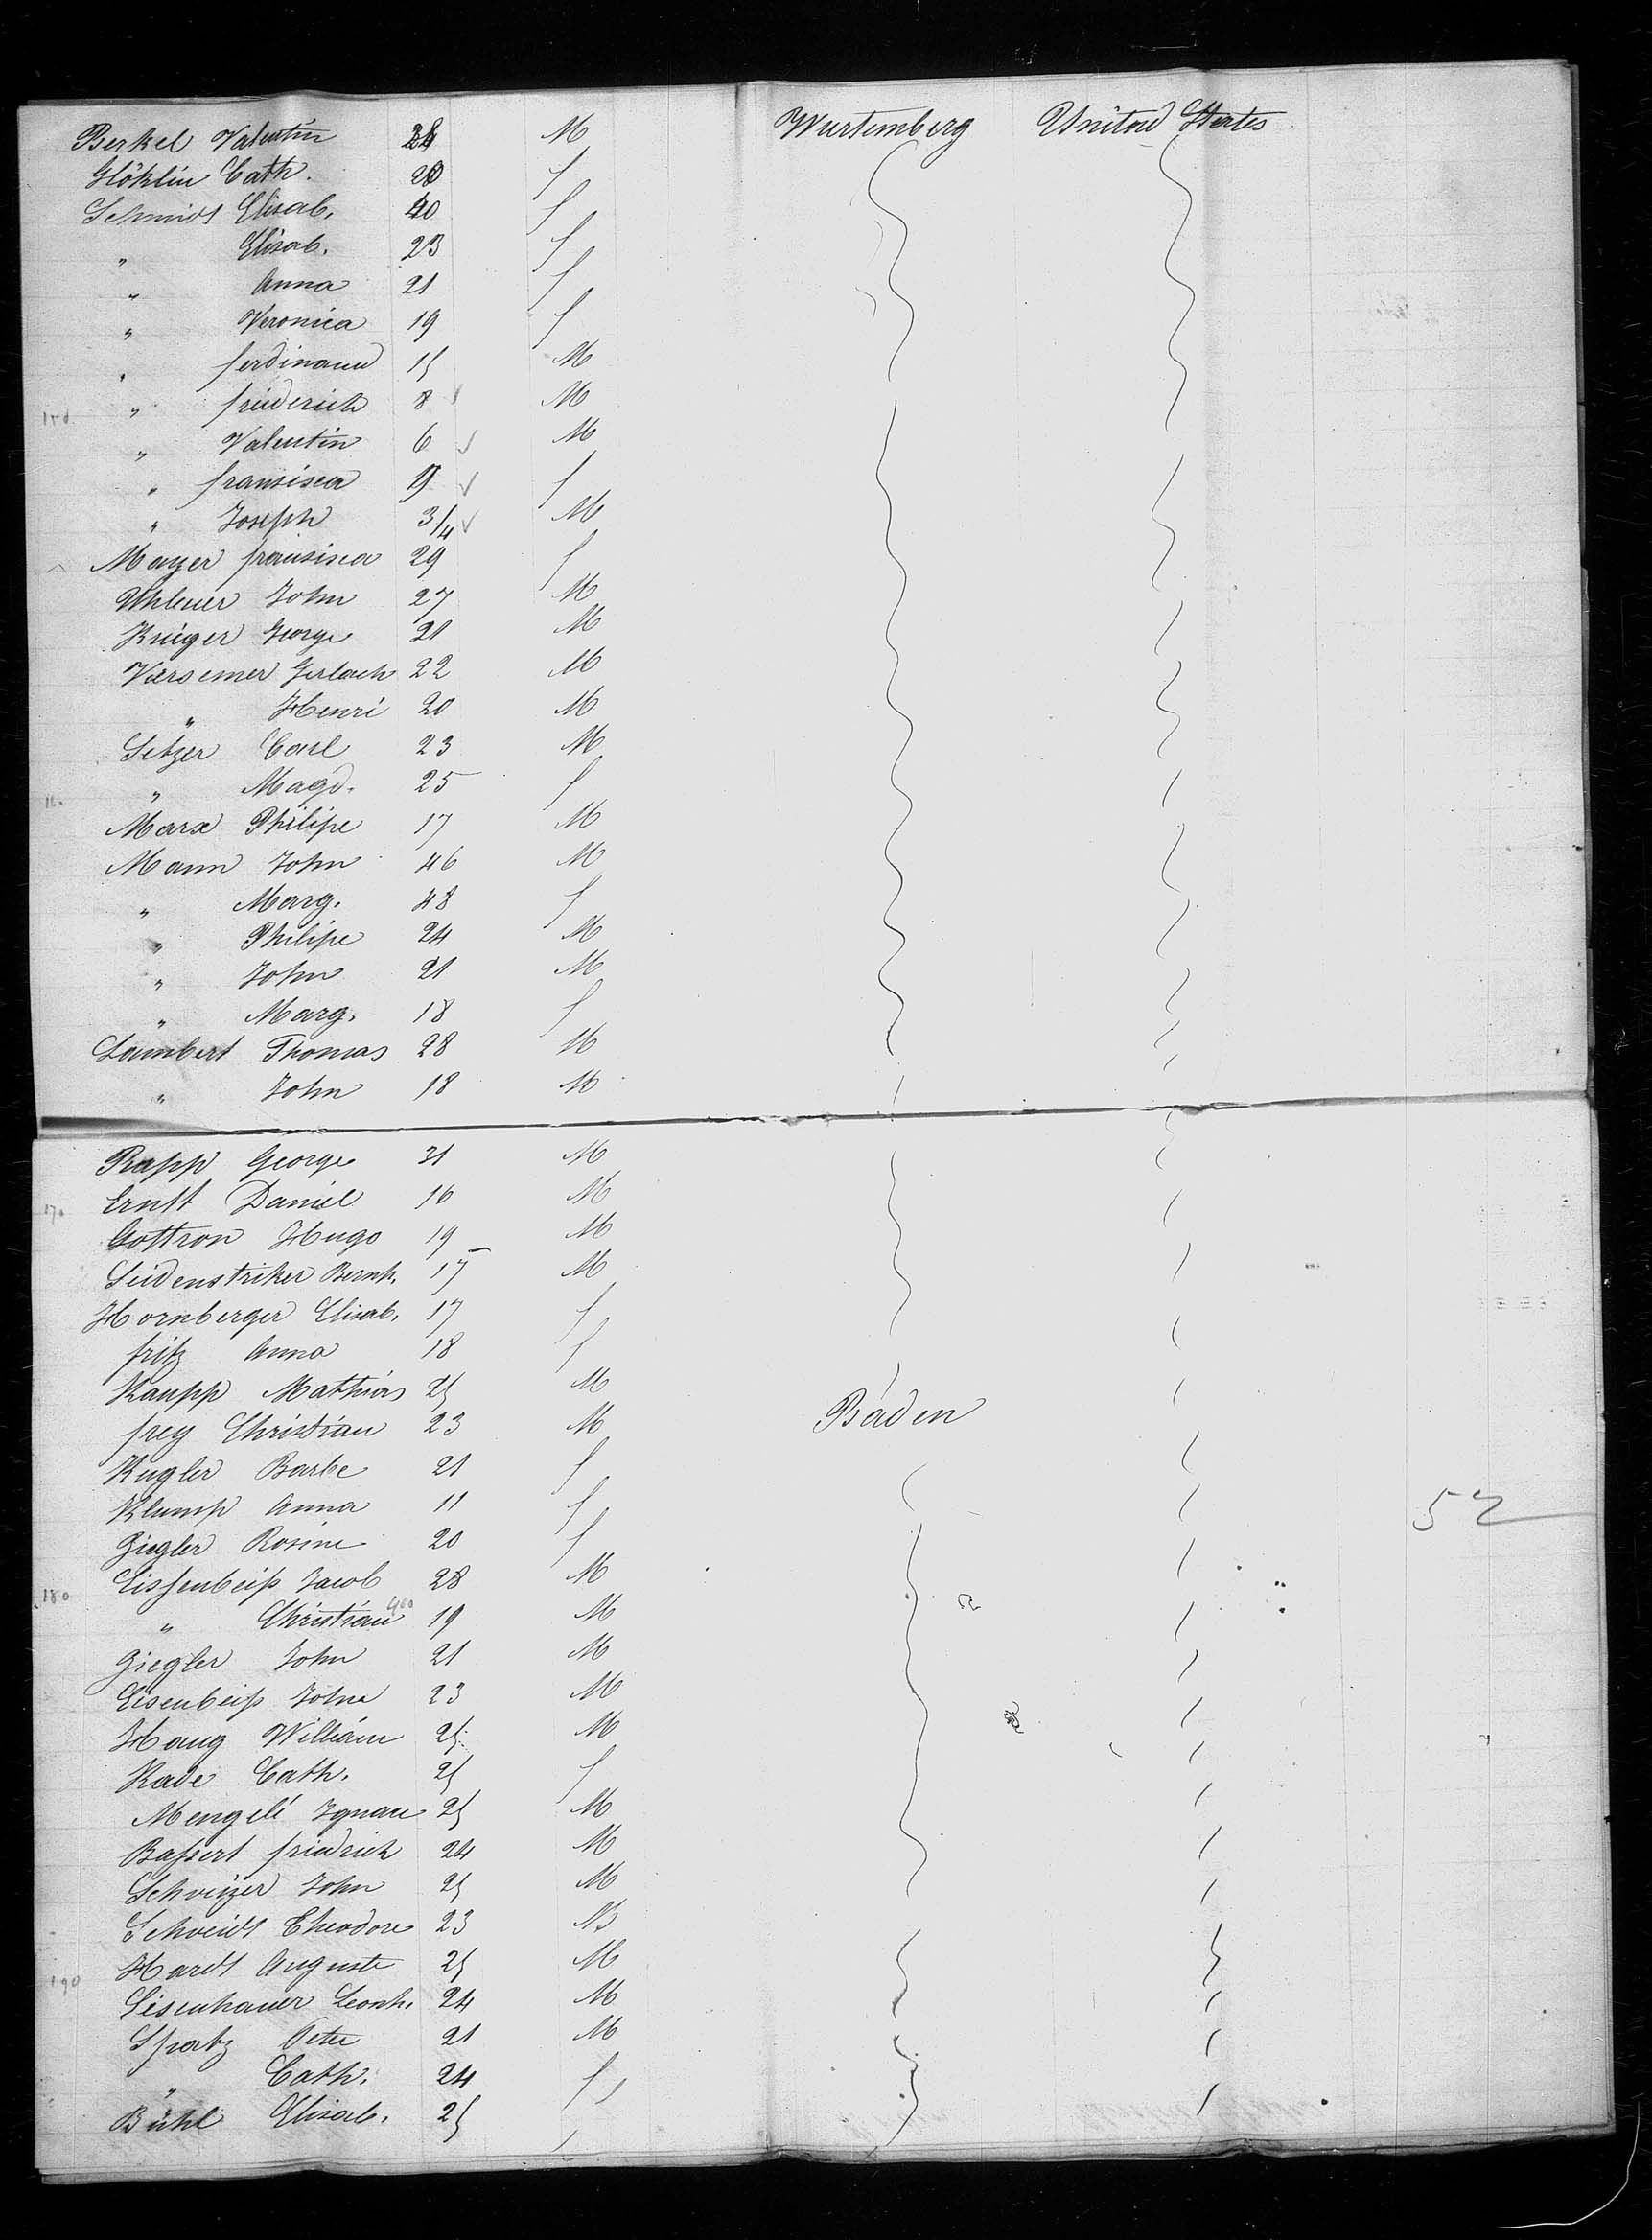 Berkel Valentin 24 M Wurtemberg United States
Glöklin Cath. 20 f
Schmidt Elisab. 40 f
" Elisab. 23 f
" Anna 21 f
" Veronica 19 f
" ferdinand 15 M
" friederich 8 M
" Valentin 6 M
" fransisca f
" Joseph 3/4 M
Mayer fransisca 29 f
John 27 M
Krieger George 21 M
Gerlach 22 M
" Henri 20 M
Setzer Carl 23 M
" Magd. 25 f
Marx Philipe 17 M
Mann John 46 M
" Marg. 48 f
" Philipe 24 M
" John 21 M
" Marg. 18 f
Lambert Thomas 28 M
" John 18 M
Rapp George 31 M
170 Ernst Daniel 16 M
Gottron Hugo 19 M
Seidenstriker Bernh. 17 M
Hornberger Elisab. 17 f
fritz Anna 18 f
Kaupp Mathias 25 M
frey Christian 23 M Baden
Kugler Barbe 21 f
Klump Anna 11 f 52
Ziegler Rosine 20 f
180 Eissenbeiss Jacob 28 M
" Christian 19 M
Ziegler John 21 M
Eisenbeiss John 23 M
Haug William 25 M
Rade Cath. 25 f
Mengele Ignace 25 M
Bassert friedrich 24 M
Schweizer John 25 M
Schmidt Theodore 23 M
190 Hardt Auguste 25 M
Eisenhauer Leonh. 24 M
Spatz Peter 21 M
" Cath. 24 f
Bühl Elisab. 25 f